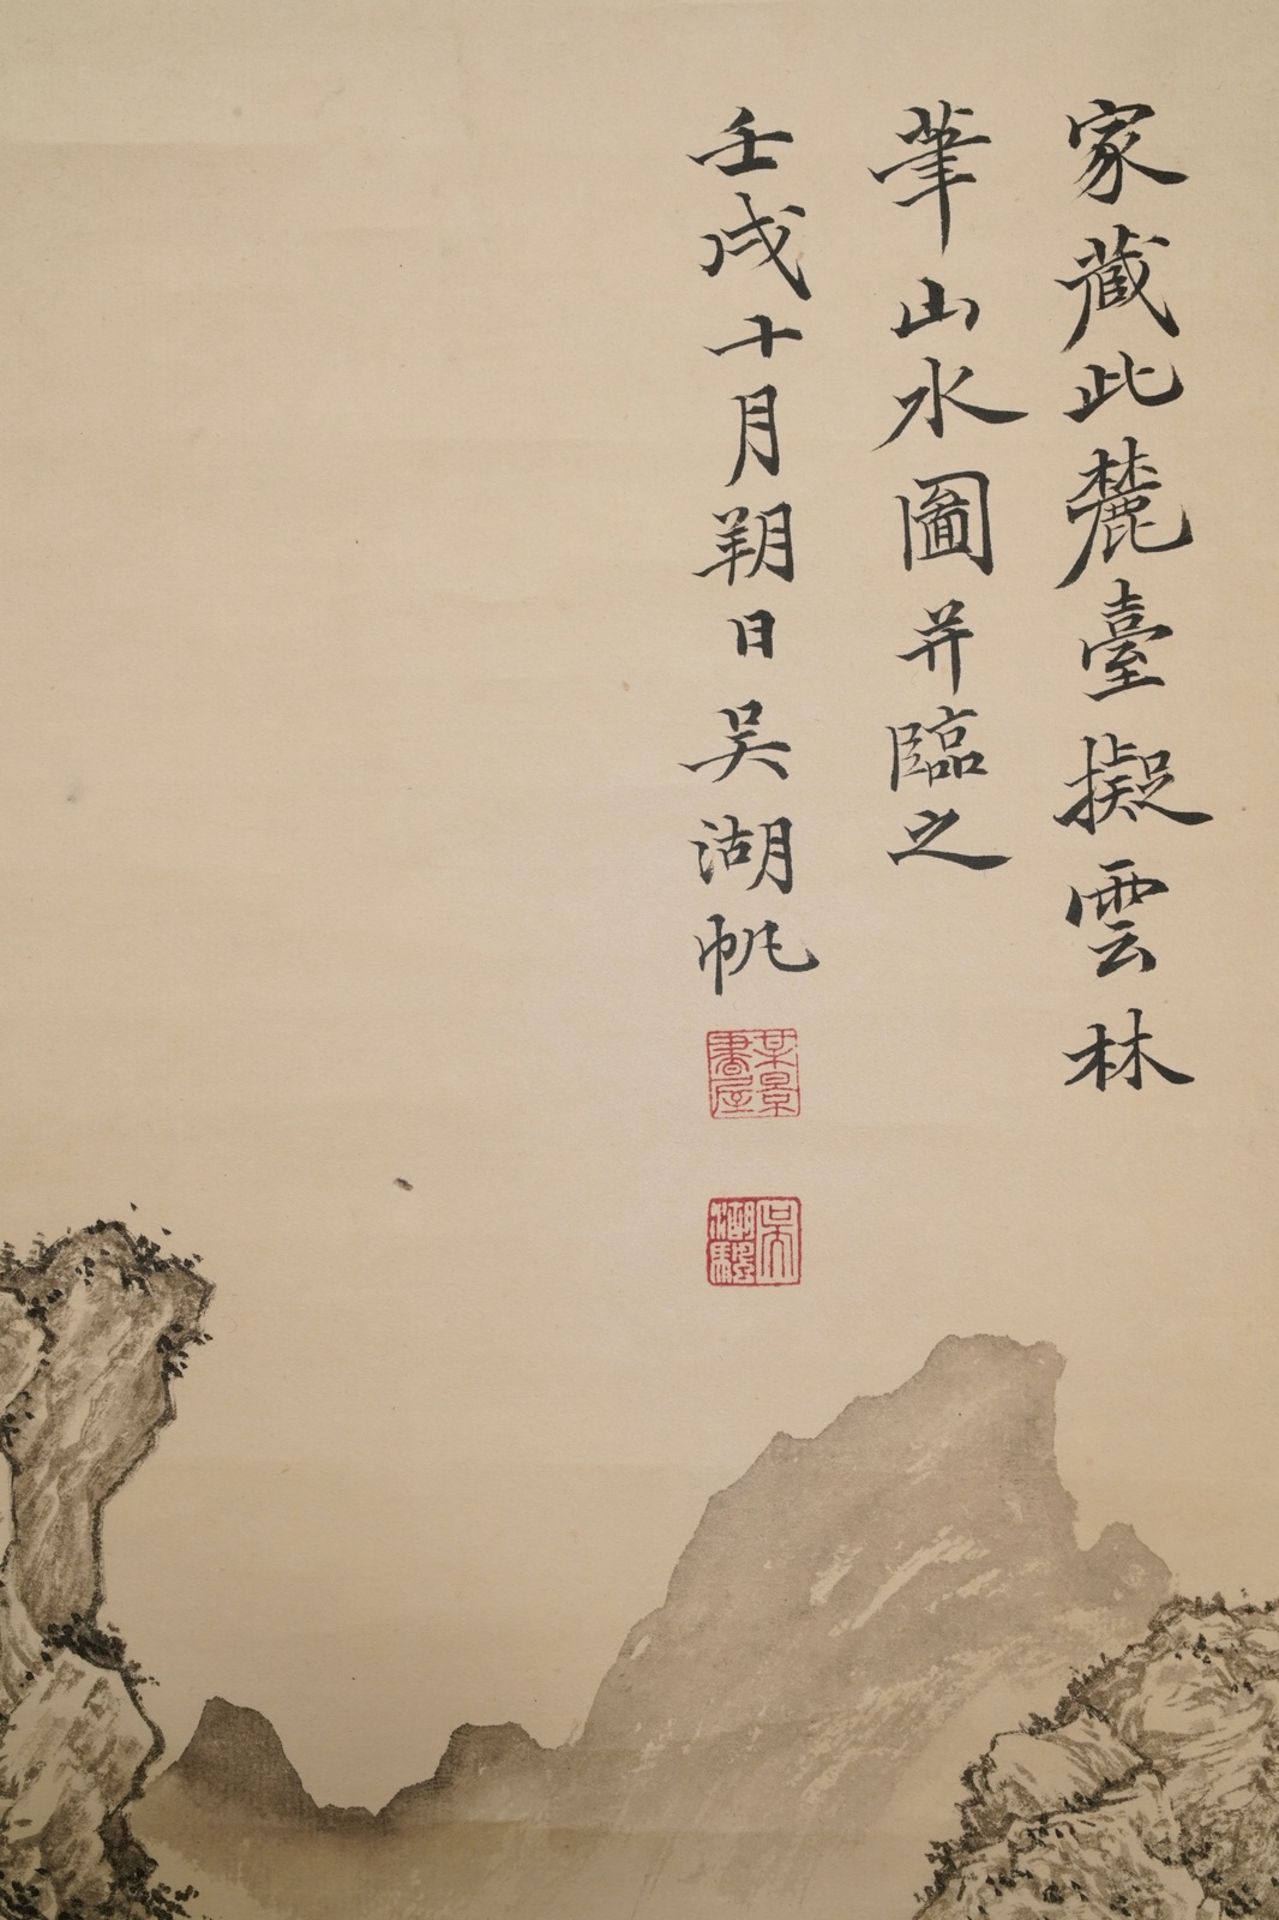 家藏此麓臺擬雲林
筆山水圖并臨之
壬戌十月朔日吴湖帆
某景書屋
吴湖驌